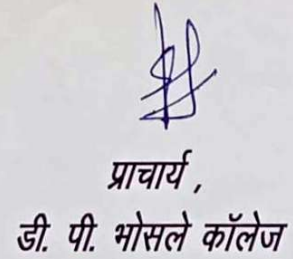 प्राचार्य ,
डी. पी. भोसले कॉलेज